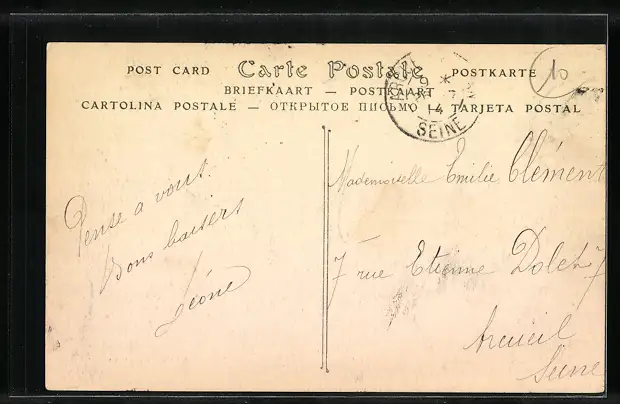 POST CARD Carte Postale POSTKARTE
BRIEFKAART — POSTKAART
CARTOLINA POSTALE — ОТКРЫТОЕ ПИСЬМО — TARJETA POSTAL
14
SEINE
10
Pense a vous.
Bons baisers
Léone
Mademoiselle Emilie Clément
7 rue Etienne Dolet 7
Arcueil
Seine